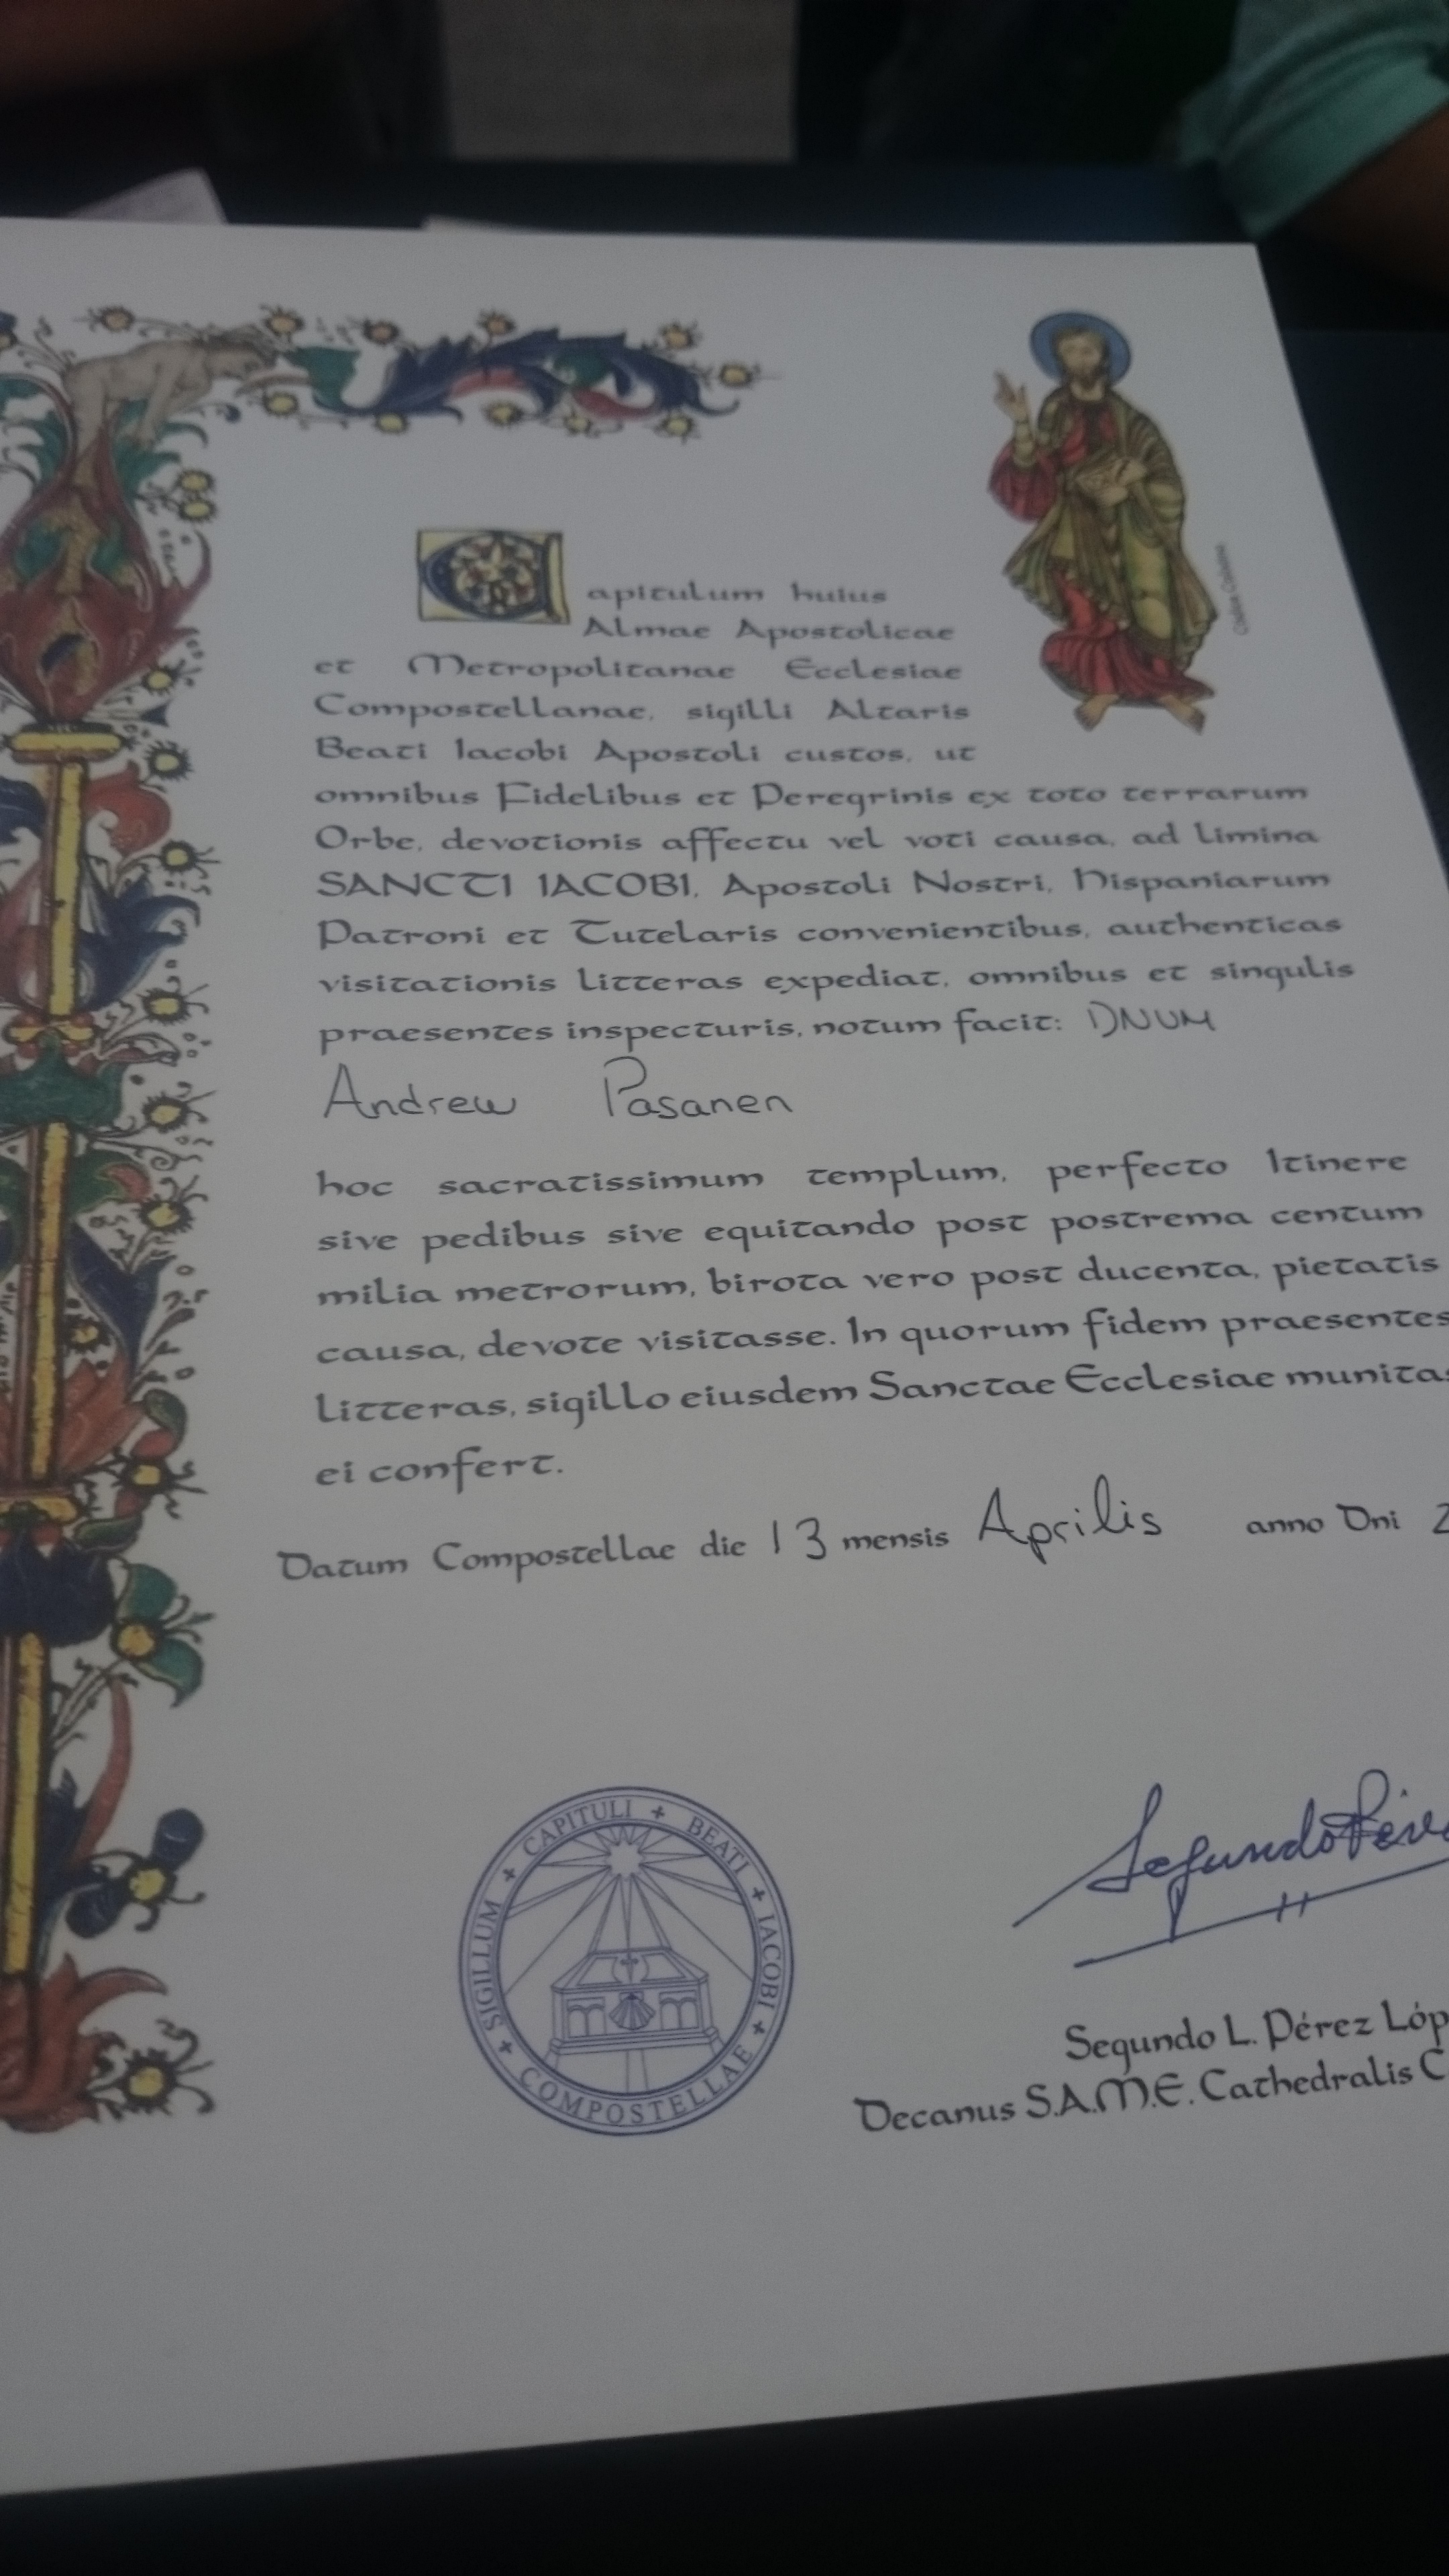 Capitulum huius
Almae Apostolicae
et Metropolitanae Ecclesiae
Compostellanae, sigilli Altaris
Beati Iacobi Apostoli custos, ut
omnibus Fidelibus et Peregrinis ex toto terrarum
Orbe, devotionis affectu vel voti causa, ad limina
SANCTI IACOBI, Apostoli Nostri, Hispaniarum
Patroni et Tutelaris convenientibus, authenticas
visitationis litteras expediat, omnibus et singulis
praesentes inspecturis, notum facit: DNUM
Andrew Pasanen
hoc sacratissimum templum, perfecto Itinere
sive pedibus sive equitando post postrema centum
milia metrorum, birota vero post ducenta, pietatis
causa, devote visitasse. In quorum fidem praesentes
litteras, sigillo eiusdem Sanctae Ecclesiae munitas
ei confert.
Datum Compostellae die 13 mensis Aprilis anno Dni 2
SIGILLUM + CAPITULI + BEATI + IACOBI + COMPOSTELLAE +
Segundo L. Pérez Lóp
Decanus S.A.M.E. Cathedralis C